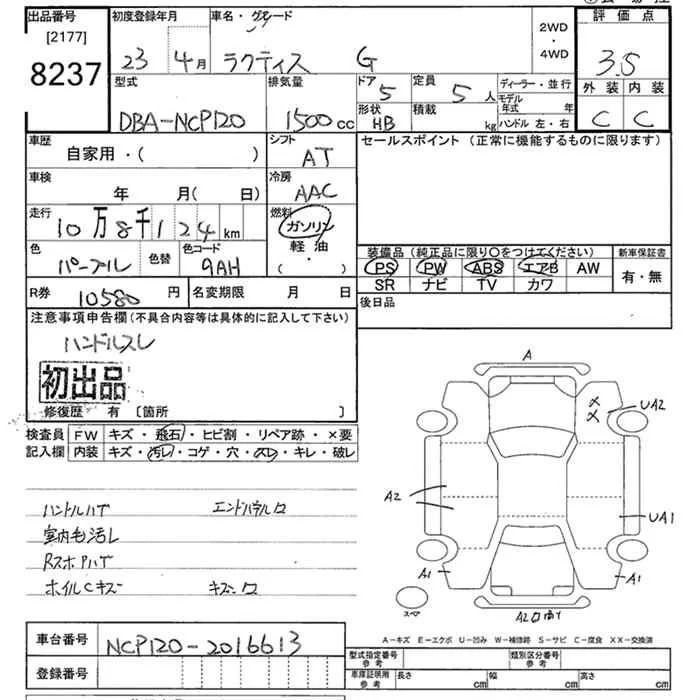 出品番号 初度登録年月 車名・グレード 評価点
[2177] 2WD
8237 23 4月 ラクティス G ・ 3.5
4WD
型式 排気量 ドア 5 定員 5人 ディーラー・並行 外装 内装
DBA-NCP120 1500cc 形状 HB 積載 kg モデル年式 年 C C
ハンドル 左・右
車歴 シフト セールスポイント (正常に機能するものに限ります)
自家用・( ) AT
車検 冷房
年 月(日) AAC
走行 燃料
10万8千124km ガソリン
色 色替 色コード 軽油 装備品 (純正品に限り○をつけてください) 新車保証書
パープル 9AH ・( ) PS PW ABS エアB AW 有・無
SR ナビ TV カワ
R券 10580円 名変期限 月 日 後日品
注意事項申告欄(不具合内容等は具体的に記入して下さい)
ハンドルスレ
初出品
修復歴 有 [箇所 ]
A
UA2
検査員 FW キズ・飛石・ヒビ割・リペア跡・×要
記入欄 内装 キズ・汚レ・コゲ・穴・スレ・キレ・破レ
A2
UA1
ハンドルハゲ
室内毛汚レ
ホイルCキズ
A1 A1
スペア
A2
A-キズ E-エクボ U-凹み W-補修跡 S-サビ C-腐食 XX-交換済
車台番号 NCP120-2016613
登録番号
型式指定番号 参考 類別区分番号 参考
車庫証明用 参考 長さ cm 幅 cm 高さ cm